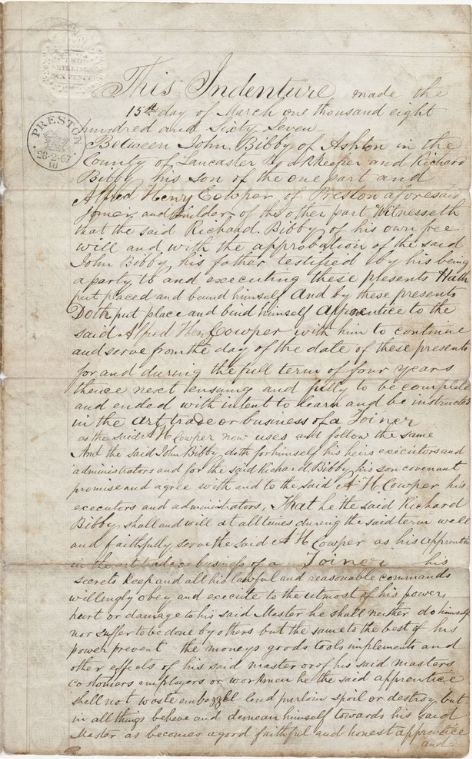 PRESTON
28·2·67
This Indenture made the
15th day of March one thousand eight
hundred and Sixty Seven
Between John Bibby of Ashton in the
County of Lancaster keeper and Richard
Bibby his son of the one part and
Alfred Henry Cowper of Preston aforesaid
Joiner and Builder of the other part Witnesseth
that the said Richard Bibby of his own free
will and with the approbation of the said
John Bibby his father testified by his being
a party to and executing these presents Hath
put placed and bound himself And by these presents
Doth put place and bind himself Apprentice to the
said Alfred Hen Cowper with him to continue
and serve from the day of the date of these presents
for and during the full term of four years
thence next ensuing and fully to be complete
and ended with intent to learn and be instructed
in the art, trade or business of a Joiner
as the said A H Cowper now uses and follow the same
And the said John Bibby doth for himself his heirs executors and
administrators and for the said Richard Bibby his son covenant
promise and agree with and to the said A H Cowper his
executors and administrators, That he the said Richard
Bibby shall and will at all times during the said term well
and faithfully serve the said A H Cowper as his apprentice
in the art trade or business of a Joiner his
secrets keep and all his lawful and reasonable commands
willingly obey and execute to the utmost of his power,
hurt or damage to his said Master he shall neither do himself
nor suffer to be done by others but the same to the best of his
power prevent the moneys goods tools implements and
other effects of his said master or of his said masters
customers employers or workmen he the said apprentice
shall not waste embezzel lend purloin spoil or destroy but
in all things behave and demean himself towards his said
Master as becomes a good faithful and honest apprentice
and